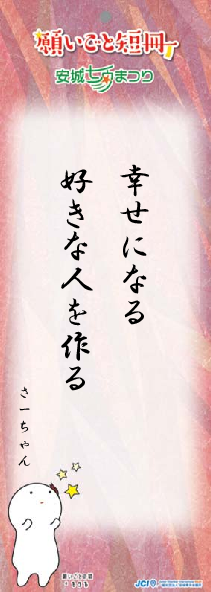 願いごと短冊
安城七夕まつり
幸せになる
好きな人を作る
さーちゃん
JCI